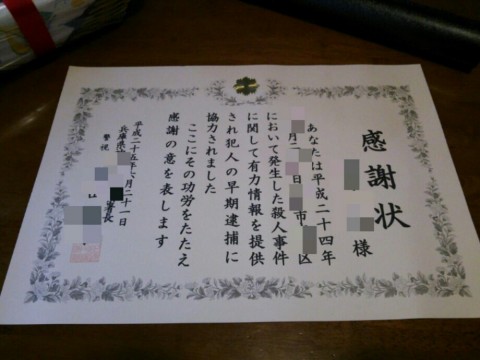 感謝状
様
あなたは平成二十四年
月二 日 市 区
において発生した殺人事件
に関して有力情報を提供
され犯人の早期逮捕に
協力されました
ここにその功労をたたえ
感謝の意を表します
平成二十五年六月二十一日
兵庫県 署長
警視